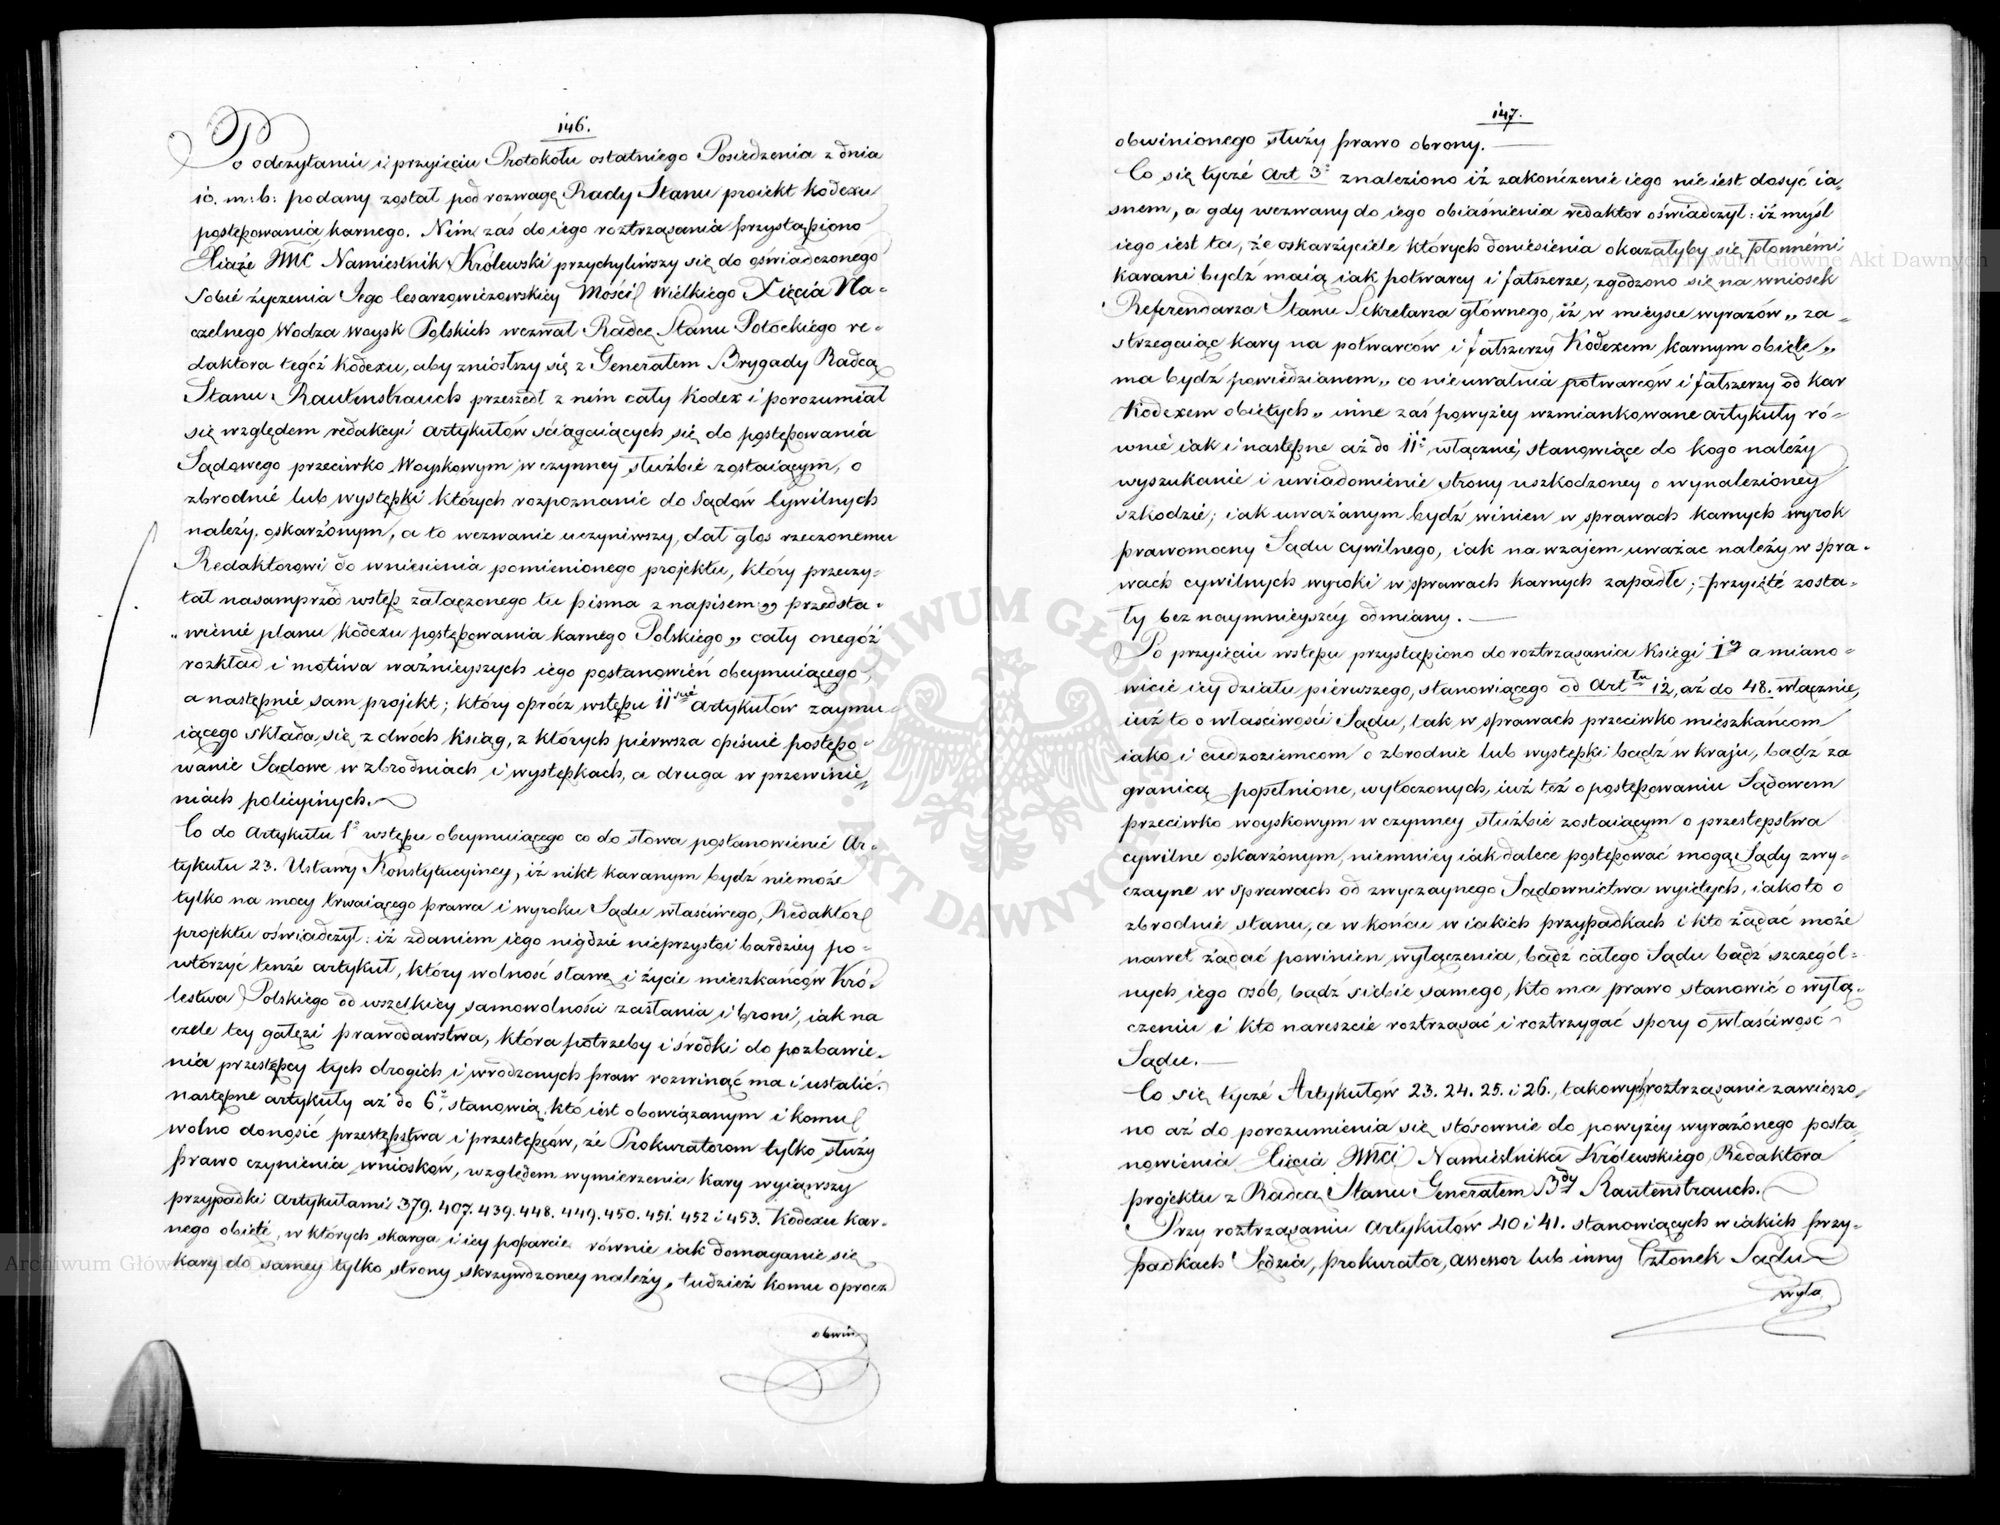 146.
Po odczytaniu i przyjęciu Protokołu ostatniego Posiedzenia z dnia
10. m: b: podany został pod rozwagę Rady Stanu projekt kodexu
postępowania karnego. Nim zaś do iego roztrząsania przystąpiono
Xiąże JMĆ Namiestnik Królewski przychyliwszy się do oświadczonego
Sobie życzenia Jego Cesarzowiczowskiey Mości Wielkiego Xięcia Na-
czelnego Wodza woysk Polskich wezwał Radcę Stanu Potockiego re-
daktora tegóż kodexu, aby zniosłszy się z Generałem Brygady Radcą
Stanu Rautenstrauch przeszedł z nim cały kodex i porozumiał
się względem redakcyi artykułów ściągaiących się do postępowania
Sądowego przeciwko Woyskowym w czynney służbie zostaiącym, o
zbrodnie lub występki których rozpoznanie do Sądów Cywilnych
należy, oskarżonym, a to wezwanie uczyniwszy, dał głos rzeczonemu
Redaktorowi do wniesienia pomienionego projektu, który przeczy-
tał nasamprzód wstęp załączonego tu pisma z napisem „ przedsta-
„ wienie planu kodexu postępowania karnego Polskiego „ cały onegóż
rozkład i motiwa ważnieyszych iego postanowień obeymuiącego,
a następnie sam projekt; który oprócz wstępu 11stu artykułów zaymu-
iącego składa się z dwóch ksiąg, z których pierwsza opisuie postępo-
wanie Sądowe w zbrodniach i występkach, a druga w przewinie-
niach policyinych.
Co do Artykułu 1o wstępu obeymuiącego co do słowa postanowienie Ar-
tykułu 23. Ustawy Konstytucyiney, iż nikt karanym bydź niemoże
tylko na mocy trwaiącego prawa i wyroku Sądu właściwego, Redaktor
projektu oświadczył: iż zdaniem iego nigdzie nieprzystoi bardziey po-
wtórzyć tenże artykuł, który wolność sławę i życie mieszkańców Kró-
lestwa Polskiego od wszelkiey samowolności zasłania i broni, iak na
czele tey gałęzi prawodawstwa, która potrzeby i środki do pozbawie-
nia przestępcy tych drogich i wrodzonych praw rozwinąć ma i ustalić.
następne artykuły aż do 6o, stanowią kto iest obowiązanym i komu
wolno donosić przestępstwa i przestępców, że Prokuratorom tylko służy
prawo czynienia wniosków, względem wymierzenia kary wyiąwszy
przypadki Artykułami 379. 407. 439. 448. 449. 450. 451. 452 i 453. Kodexu kar-
nego obięte, w których skarga i iey poparcie równie iak domaganie się
kary do samey tylko strony skrzywdzoney należy, tudzież komu oprócz
obwin
147.
obwinionego służy prawo obrony.
Co się tycze Art 3o znaleziono iż zakończenie iego nie iest dosyć ia-
snem, a gdy wezwany do iego obiaśnienia redaktor oświadczył: iż myśl
iego iest ta, że oskarżyciele których doniesienia okazałyby się płonnémi
karani bydź maią iak potwarcy i fałszerze, zgodzono się na wniosek
Referendarza Stanu Sekretarza głównego, iż w mieysce wyrazów „ za-
strzegaiąc kary na potwarców i fałszerzy Kodexem karnym obięte „
ma bydź powiedzianem „ co nieuwalnia potwarców i fałszerzy od kar
Kodexem obiętych „ inne zaś powyżey wzmiankowane artykuły ró-
wnie iak i następne aż do 11o włącznie, stanowiące do kogo należy
wyszukanie i uwiadomienie strony uszkodzoney o wynalezioney
szkodzie; iak uważanym bydź winien w sprawach karnych wyrok
prawomocny Sądu cywilnego, iak na wzajem uważać należy w spra-
wach cywilnych wyroki w sprawach karnych zapadłe; przyięte zosta-
ły bez naymnieyszéy odmiany.
Po przyięciu wstępu przystąpiono do roztrząsania Księgi Iey a miano-
wicie iey działu pierwszego, stanowiącego od Arttu 12, aż do 48. włącznie,
iuż to o właściwości Sądu, tak w sprawach przeciwko mieszkańcom
iako i cudzoziemcom o zbrodnie lub występki bądź w kraju, bądź za
granicą popełnione, wytoczonych, iuż też o postępowaniu Sądowem
przeciwko woyskowym w czynney służbie zostaiącym o przestępstwa
cywilne oskarżonym, niemniey iak dalece postępować mogą Sądy zwy-
czayne w sprawach od zwyczaynego Sądownictwa wyiętych, iako to o
zbrodnie stanu, a w końcu w iakich przypadkach i kto żądać może
nawet żądać powinien wyłączenia, bądź całego Sądu bądź szczegól-
nych iego osób, bądź siebie samego, kto ma prawo stanowić o wyłą-
czeniu i kto nareszcie roztrząsać i roztrzygać spory o właściwość
Sądu.
Co się tycze Artykułów 23. 24. 25. i 26., takowych roztrząsanie zawieszo-
no aż do porozumienia się stósownie do powyżey wyrażonego posta-
nowienia Xięcia JMCi Namiestnika Królewskiego, Redaktora
projektu z Radcą Stanu Generałem Bdy Rautenstrauch.
Przy roztrząsaniu Artykułów 40 i 41. stanowiących w iakich przy-
padkach Sędzia, prokurator, assessor lub inny Członek Sądu
wyłą
Archiwum Główne Akt Dawnych
ARCHIWUM GŁÓWNE AKT DAWNYCH